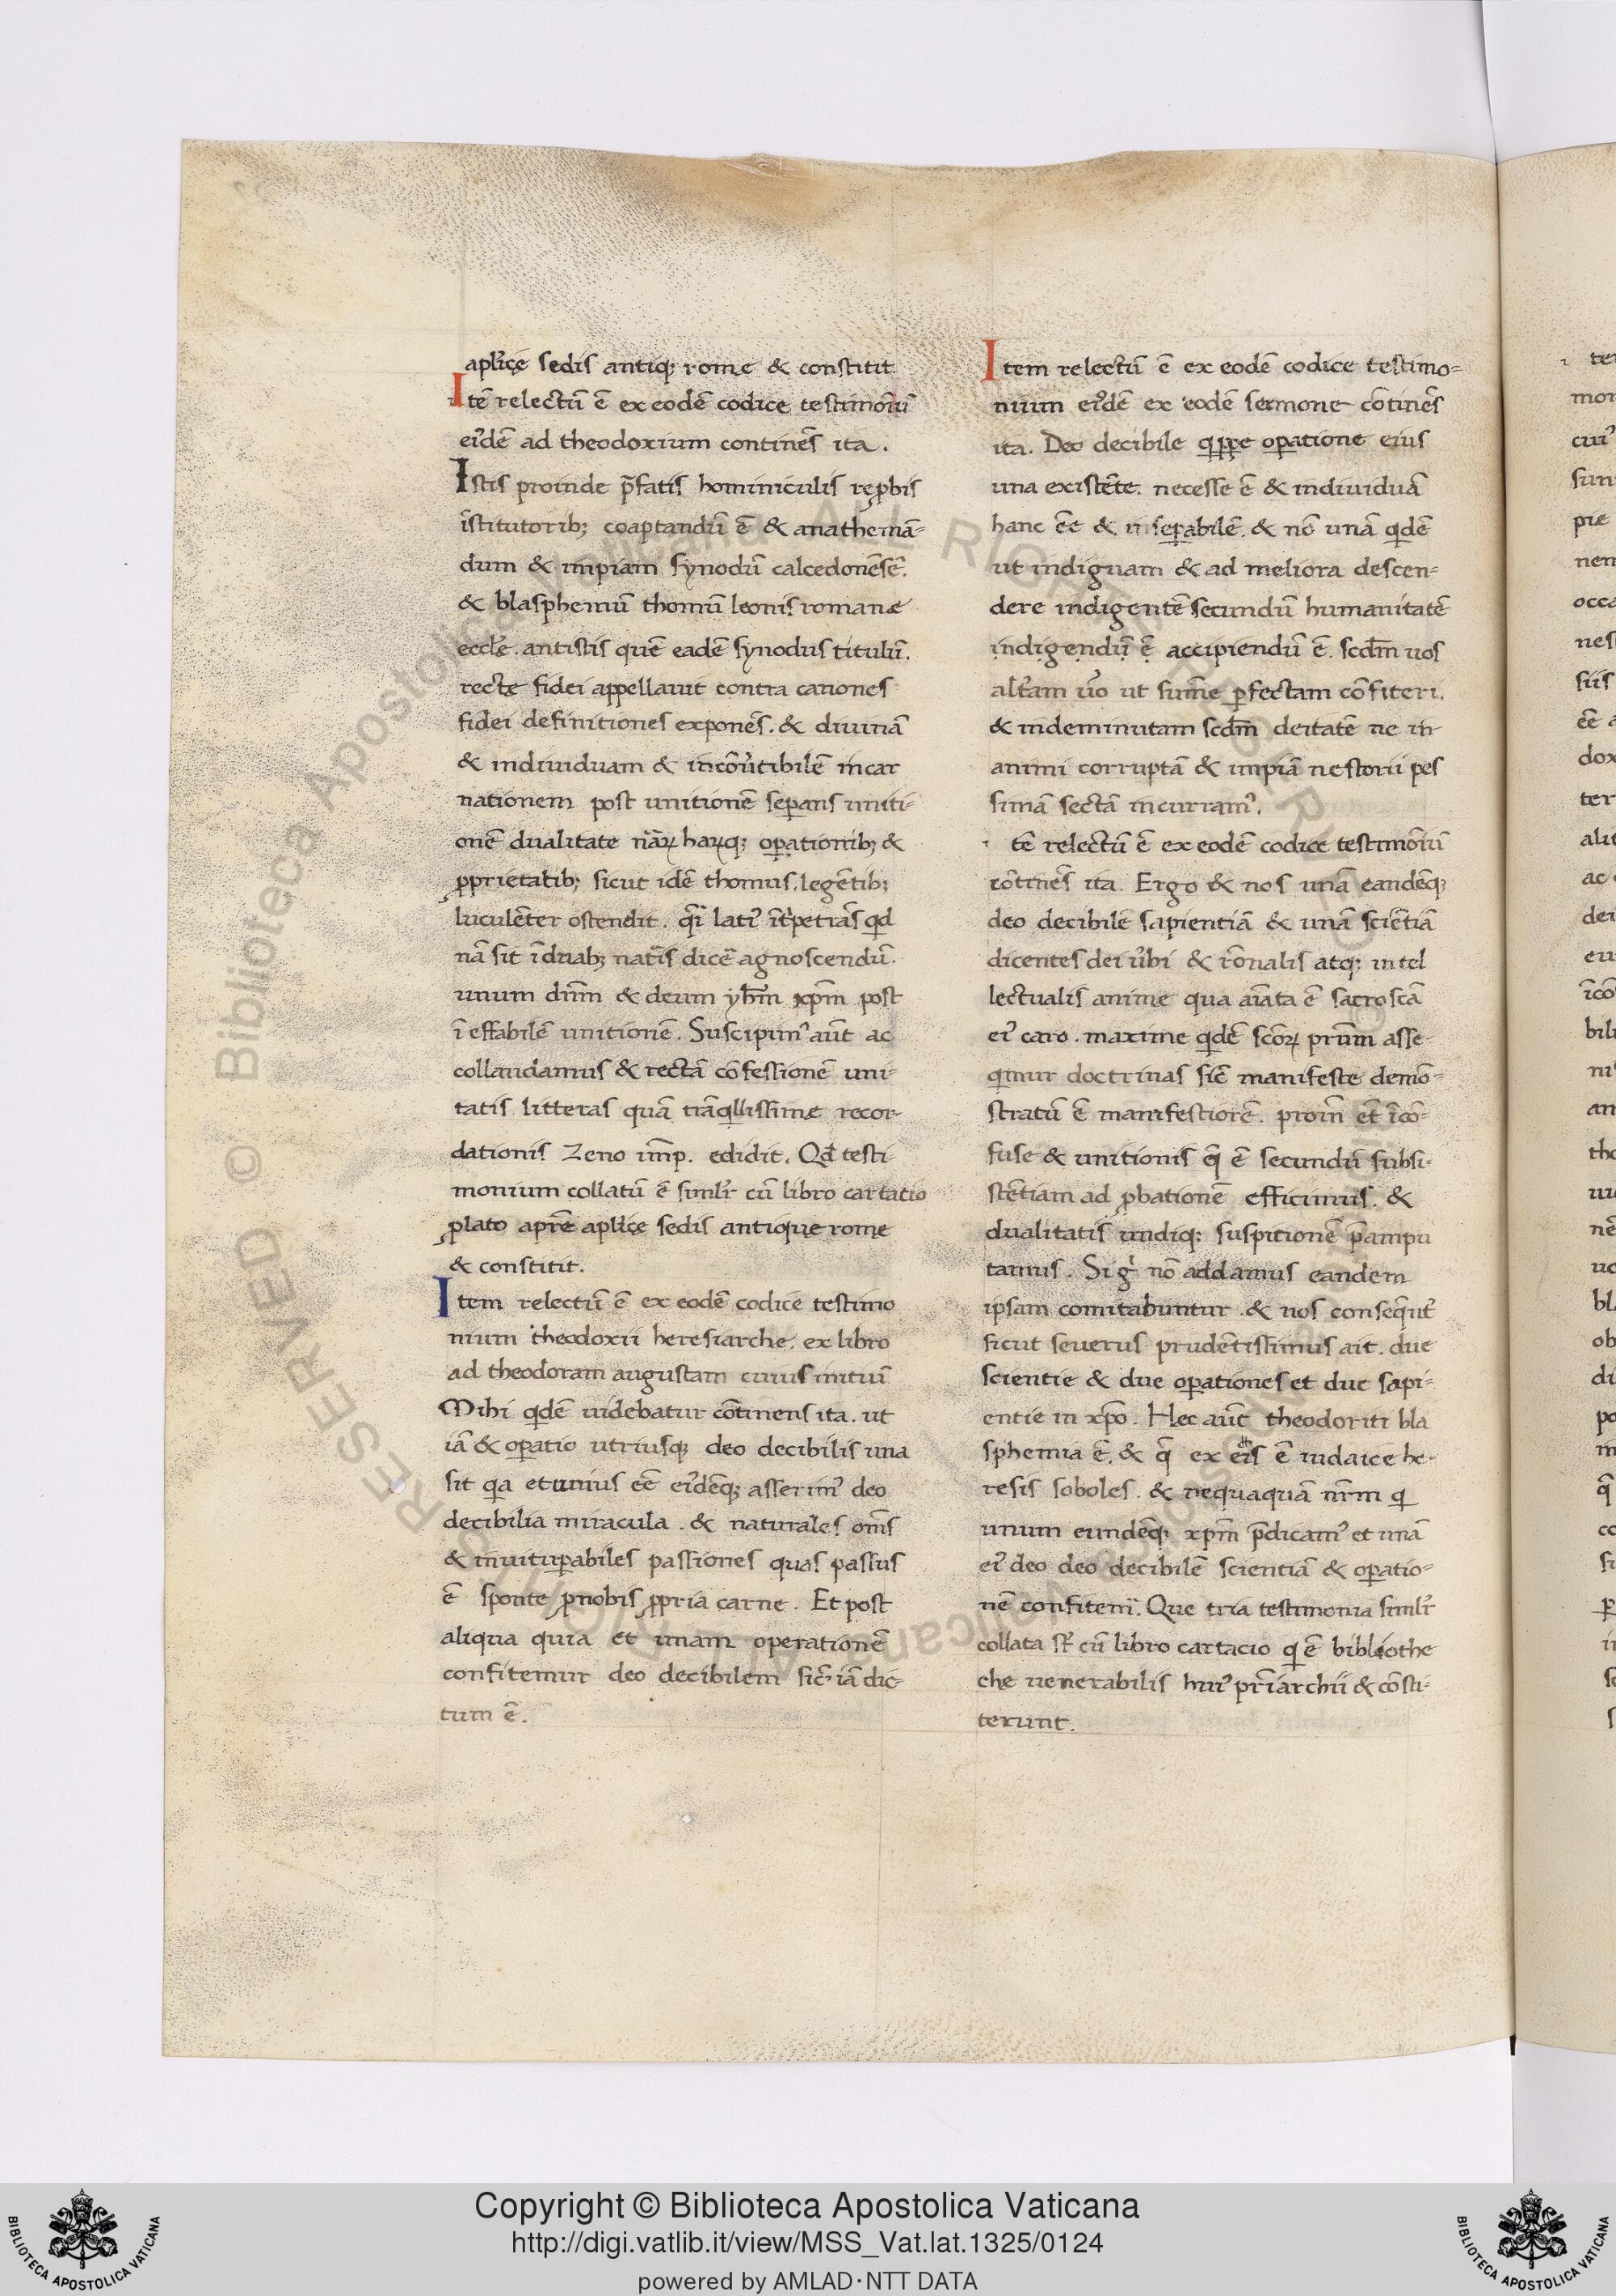 apl'icę sedis antiq; rome & constitit
Itē relectū ē ex eodē codice testimōiū
ei'dē ad theodoxium continēs ita.
Istis proinde p̄fatis hominiculis reꝓbis
īstitutorib; coaptandū ē & anathemā-
dum & impiam synodū calcedonēsē.
& blasphemū thomū leonis romane
eccl'e. antistis quē eadē synodus titulū.
recte fidei appellauit contra canones
fidei definitiones exponēs. & diuinā
& indiuiduam & incōu'tibilē incar
nationem post unitionē seꝑans uniti-
onē dualitate nāꝝ haꝝq; oꝑationib; &
ꝓprietatib; sicut idē thomus. legētib;
luculēter ostendit. lati' īt'petrās qd
nā sit ī duab; nat'is dicē agnoscendū.
unum dn̄m & deum yhm̄ xp̄m post
ī effabilē unitionē. Suscipim' aūt ac
collaudamus & rectā cōfessionē uni-
tatis litteras quā trāq'llissime recor-
dationis Zeno im̄p. edidit. Qd̄ testi
monium collatū ē simil'r cū libro cartatio
ꝓlato apr̄e apl'ice sedis antique rome
& constitit.
Item relectū ē ex eodē codice testimo
nium theodoxii heresiarche. ex libro
ad theodoram augustam cuius initiū
Mihi qdē uidebatur cōtinens ita. ut
iā & oꝑatio utriusq; deo decibilis una
sit q'a et unius eē ei'dēq; asserim' deo
decibilia miracula. & naturales om̄s
& inuituꝑabiles passiones quas passus
ē sponte ꝓnobis ꝓpria carne. Et post
aliqua quia et unam operationē
confitemur deo decibilem sic' iā dic-
tum ē.
Item relectū ē ex eodē codice testimo-
nium ei'dē ex eodē sermone cōtinēs
ita. Deo decibile oꝑatione eius
una existēte. necesse ē & indiuiduā
hanc eē & inseꝑabilē. & nō unā q'dē
ut indiguam & ad meliora descen-
dere indigentē secundū humanitatē
indigendū ē accipiendū ē. scdm̄ uos
alt'am u'o ut sum̄e ꝑfectam cōfiteri.
& indeminutam scdm̄ deitatē ne in
animi corruptā & impiā nestorii pes
simā sectā incurram'.
i tē relectū ē ex eodē codice testimōiū
cōtinēs ita. Ergo & nos unā eandēq;
deo decibilē sapientiā & unā sciētiā
dicentes dei u'bi & rōnalis atq; intel
lectualis anime qua aīata ē sacroscā
ei' caro. maxime q'dē scōꝝ pr̄um asse
q'mur doctrinas sic̄ manifeste demō-
stratū ē manifestiorē. proin̄ et īcō-
fuse & unitionis q̄ ē secundū subsi-
stētiam ad ꝓbationē efficimus. &
dualitatis undiq; suspitionē p̄ampu
tamus. Si g' nō addamus eandem
ipsam comitabuntur. & nos conseq̄ut'
sicut seuerus prudētissimus ait. due
scientie & due oꝑationes et due sapi-
entie in xp̄o. Hec aūt theodoriti bla
sphemia ē. & q̄ ex eis ē iudaice he-
resis soboles. & nequaquā nr̄m q'
unum eundēq; xp̄m p̄dicam' et unā
ei' deo deo decibilē scientiā & oꝑatio-
nē confitem'. Que tria testimonia simil'r
collata st' cū libro cartacio q' ē bibliothe
che uenerabilis hui' pr̄iarchii & cōsti-
terunt.
Copyright © Biblioteca Apostolica Vaticana
http://digi.vatlib.it/view/MSS_Vat.lat.1325/0124
powered by AMLAD·NTT DATA